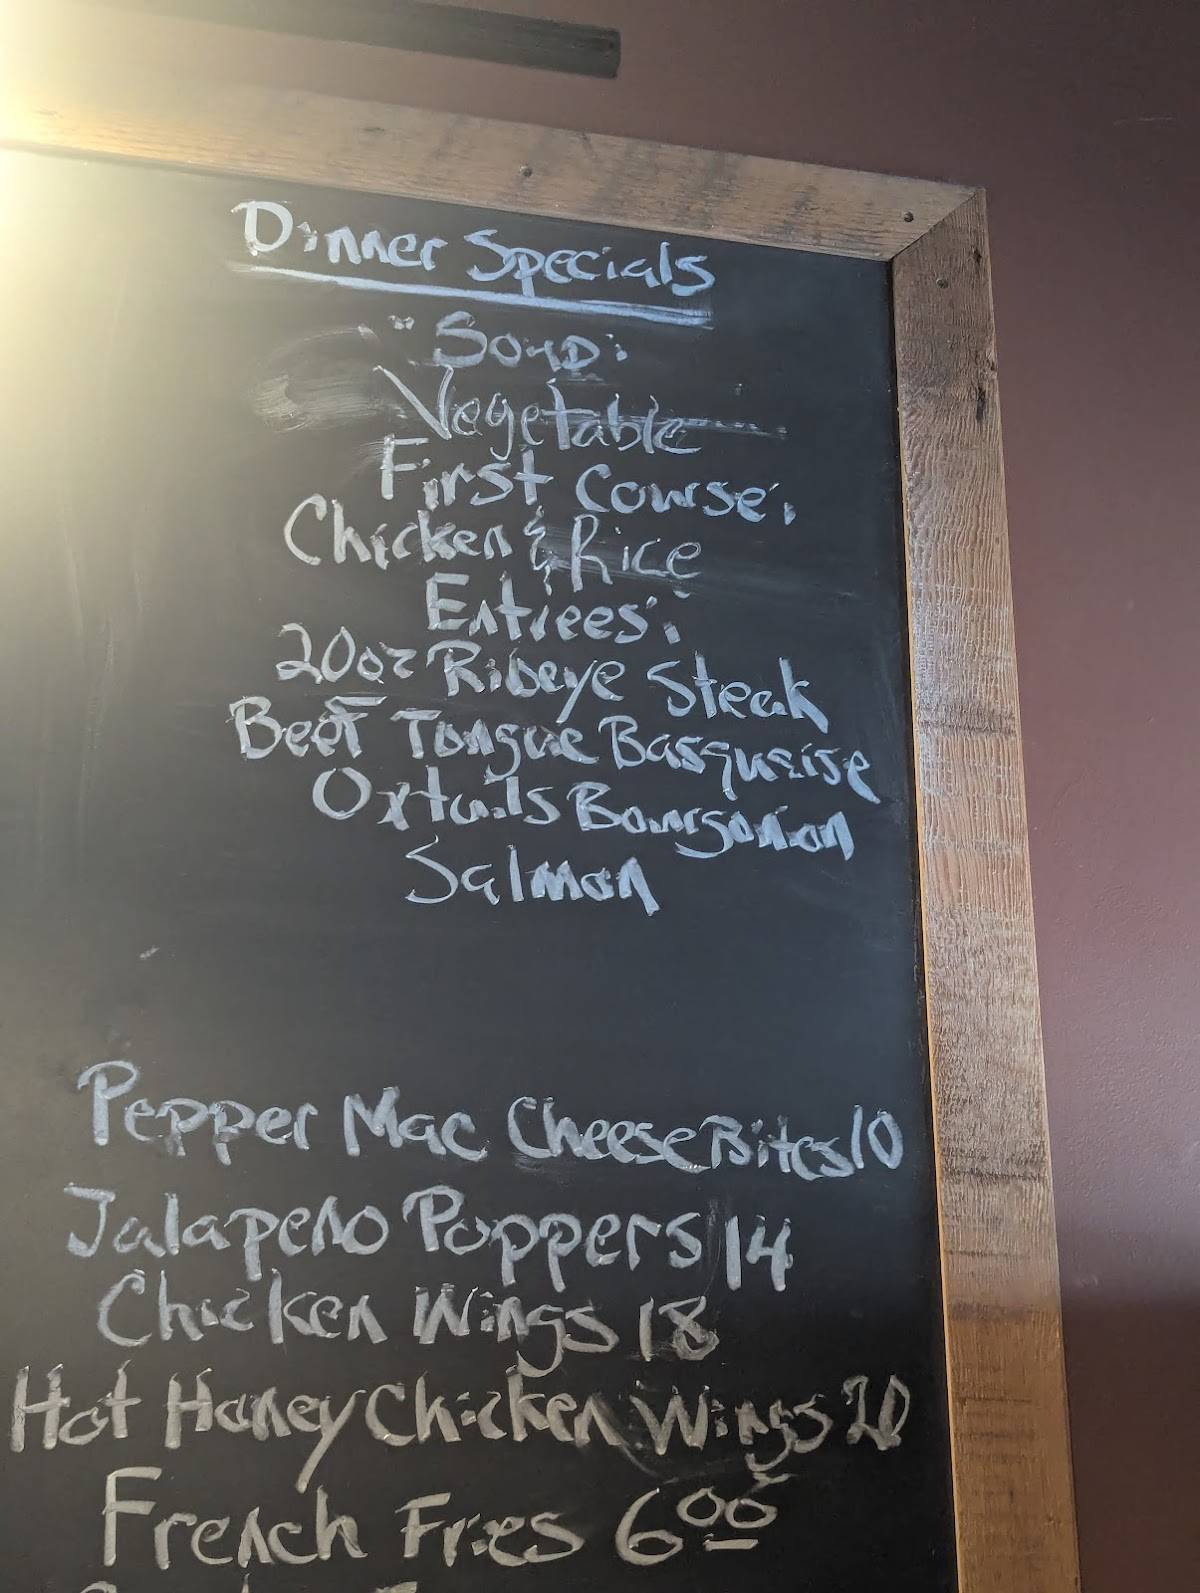 Dinner Specials
"Soup:
Vegetable
First Course:
Chicken & Rice
Entrees:
20oz Ribeye Steak
Beef Tongue Basquaise
Oxtails Bourgonion
Salmon
Pepper Mac Cheese Bites 10
Jalapeno Poppers 14
Chicken Wings 18
Hot Honey Chicken Wings 20
French Fries 6⁰⁰